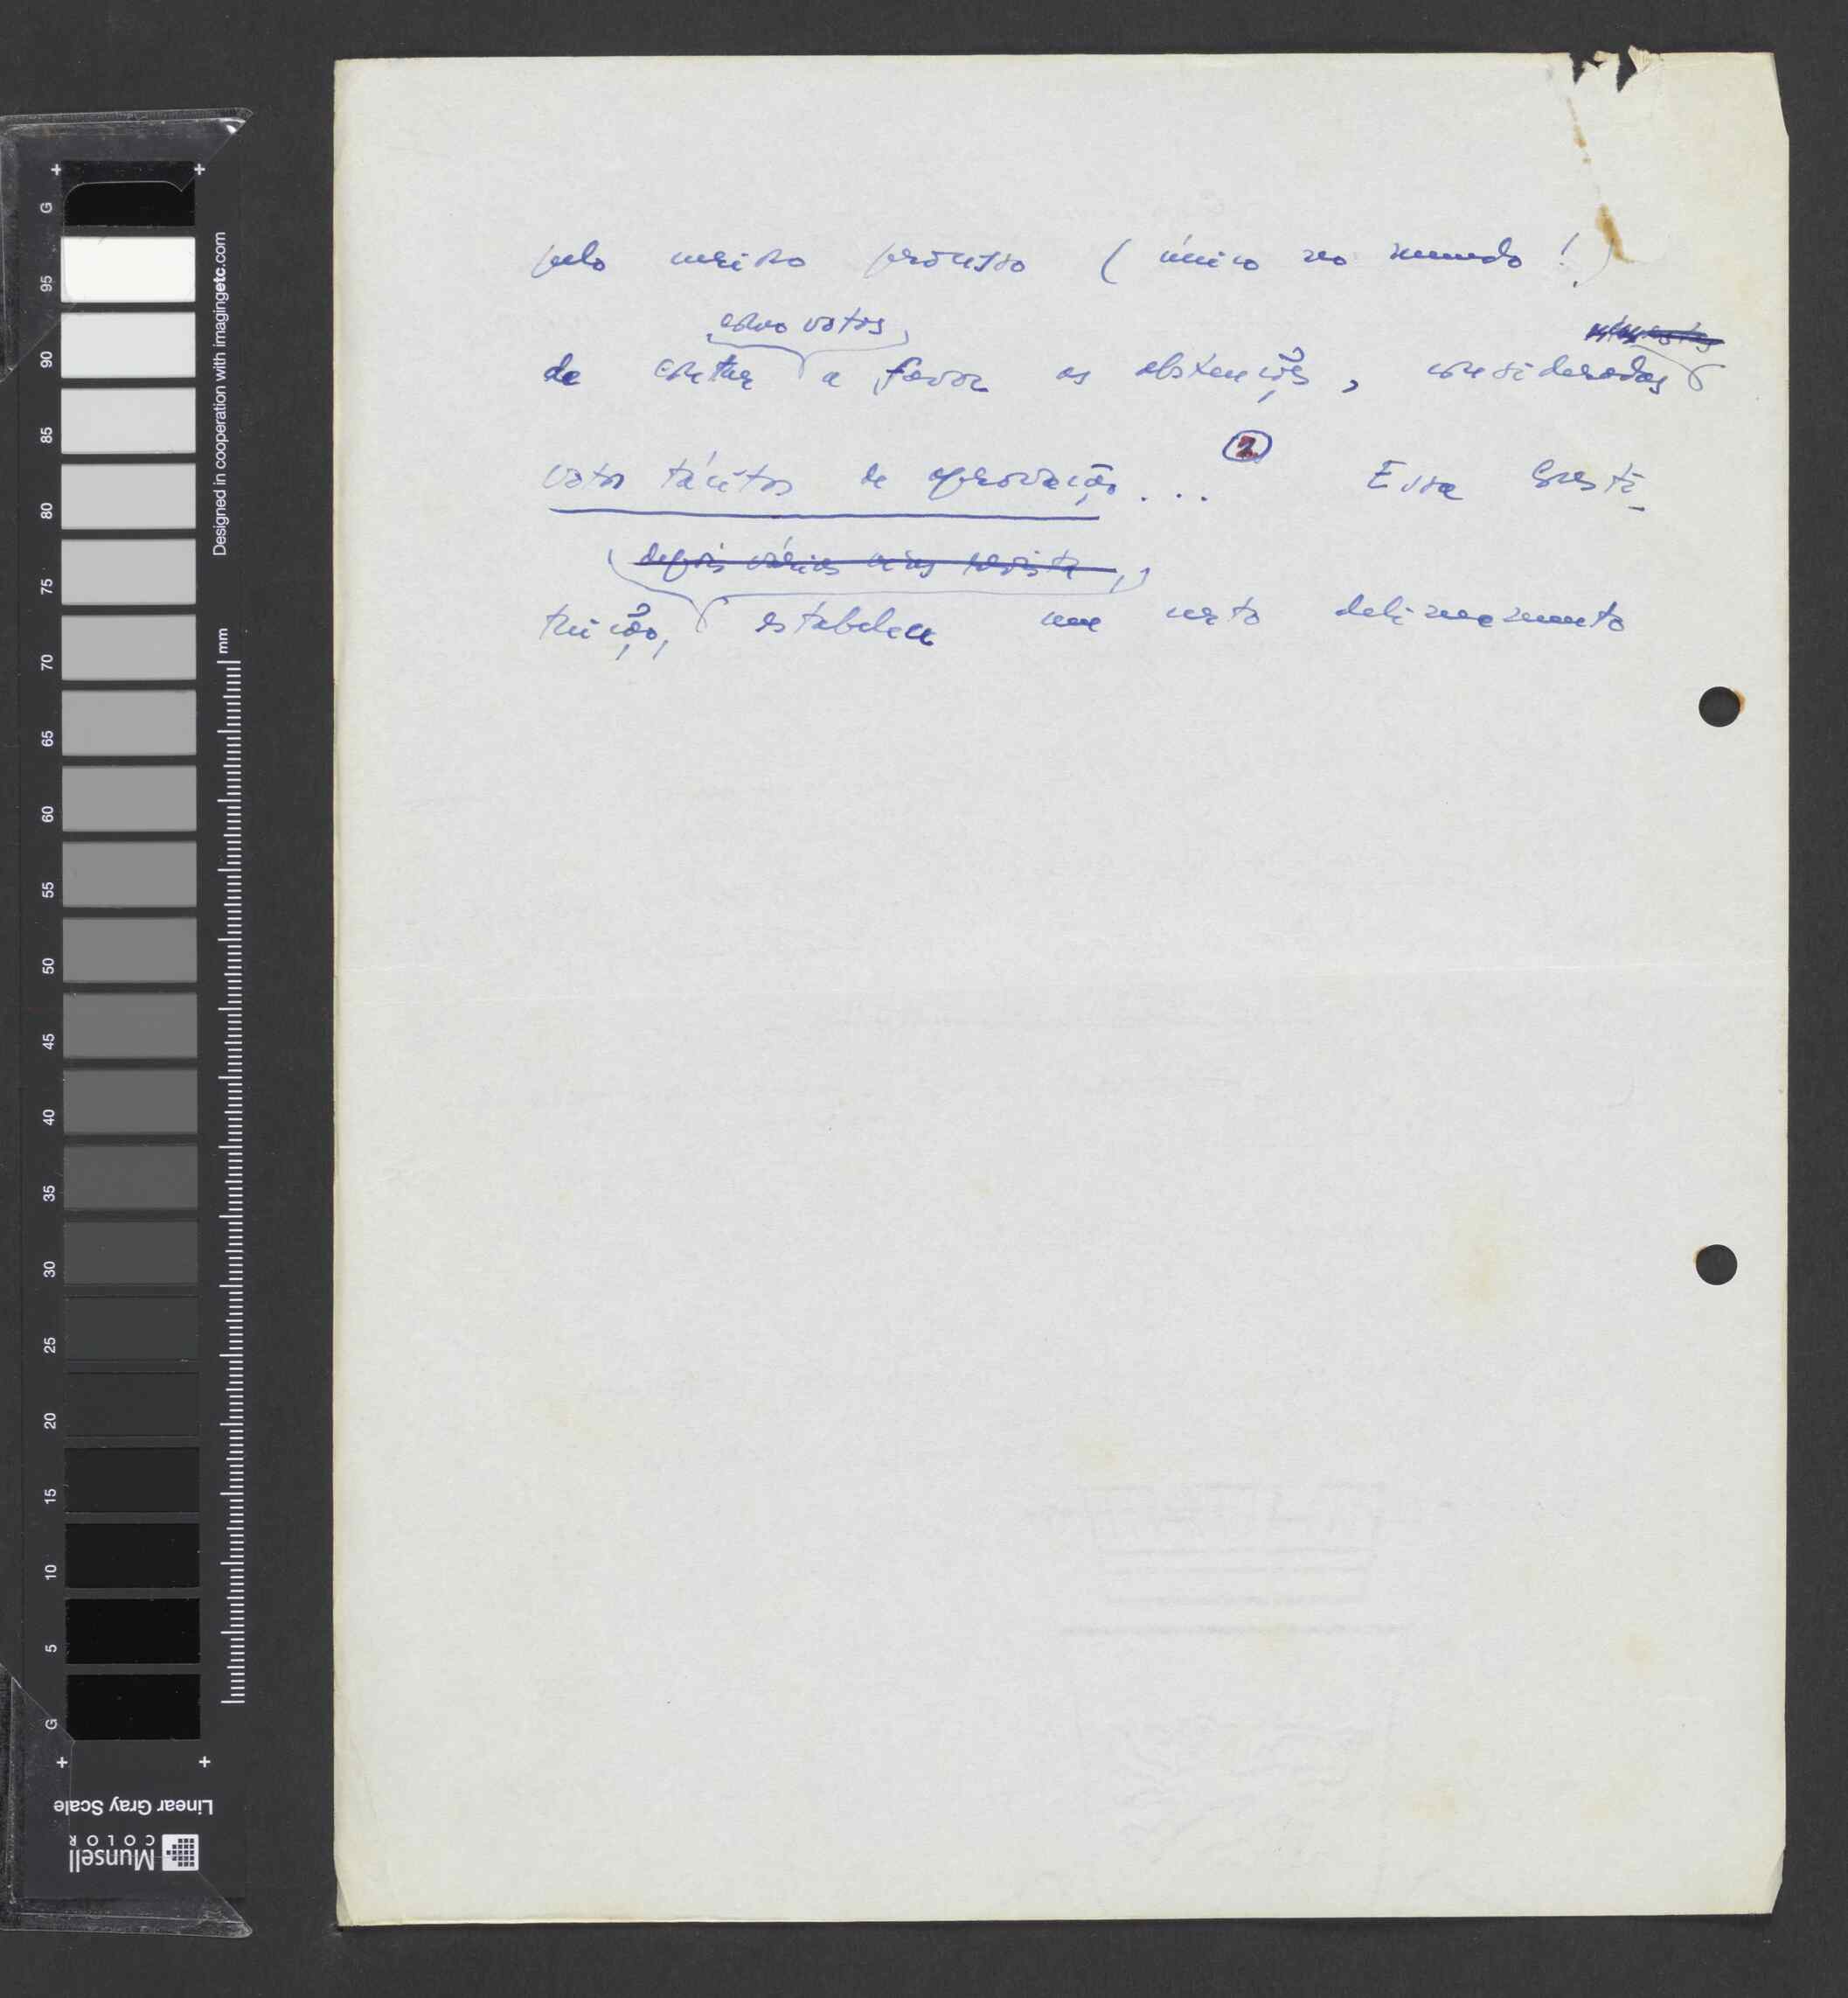 pelo curioso processo (único no mundo!)
como votos
de contar a favor as abstenções, consideradas
votos tácitos de aprovação... 2 Essa Consti-
depois várias vezes revista,
tuição, estabelece um certo delineamento
G
95
90
85
80
75
70
65
60
55
50
45
40
35
30
25
20
15
10
5
G
Designed in cooperation with imagingetc.com
mm
Linear Gray Scale
Munsell
COLOR